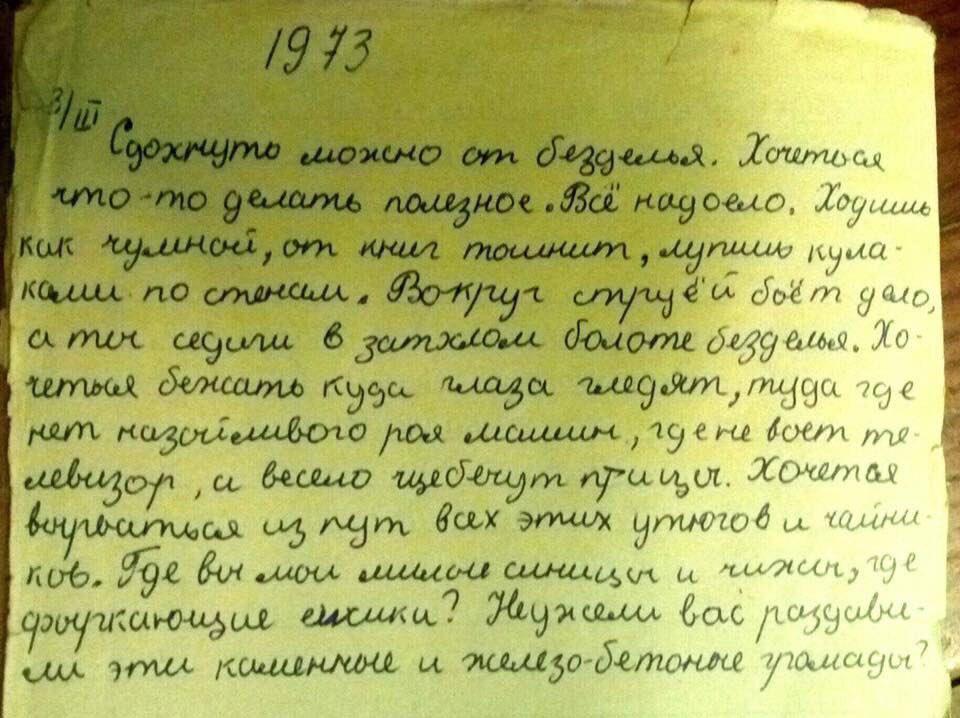 1973
3/III
Сдохнуть можно от безделья. Хочеться
что-то делать полезное. Всё надоело. Ходишь
как чумной, от книг тошнит, лупишь кула-
ками по стенам. Вокруг струёй бьёт дело,
а ты седиш в затхлом болоте безделья. Хо-
четься бежать куда глаза гледят, туда где
нет назойливого роя машин, где не воет те-
левизор, а весело щебечут птицы. Хочеться
вырваться из пут всех этих утюгов и чайни-
ков. Где вы мои милые синицы и чижы, где
фыркающие ежики? Неужели вас раздави-
ли эти каменные и железо-бетоные грамады?